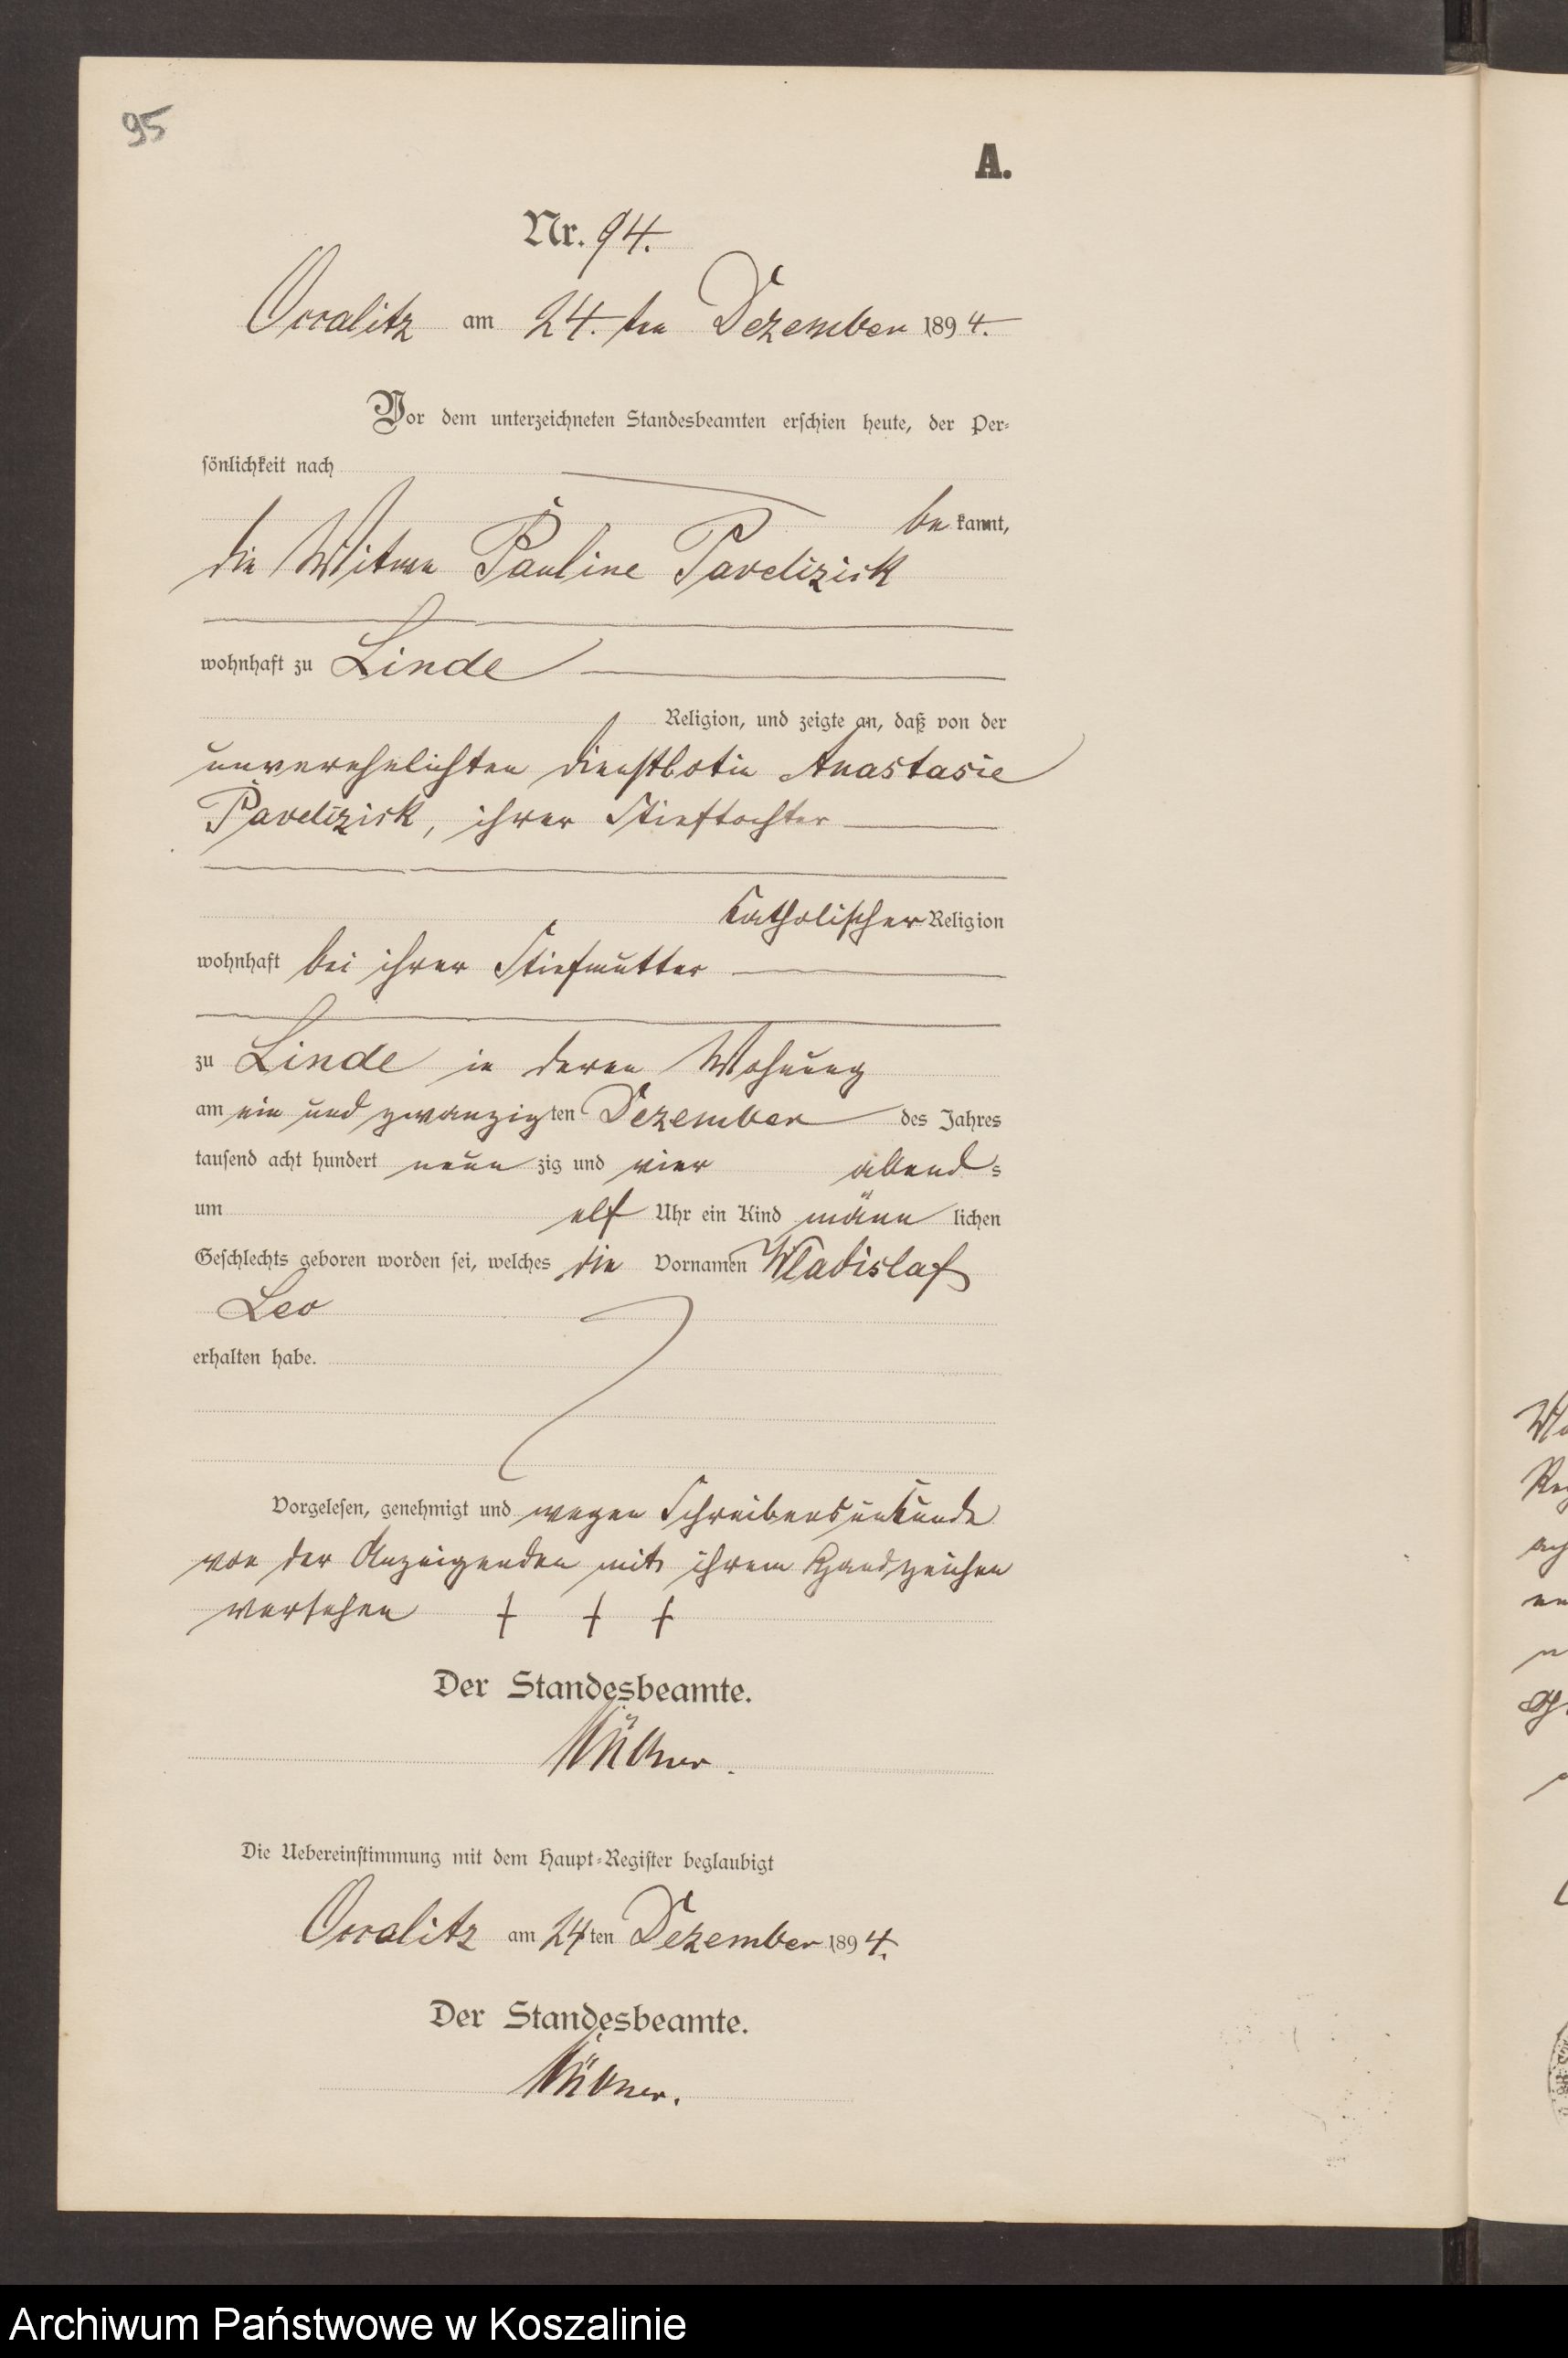 95
A.
Nr. 94.
am 24. ten Dezember 1894.
Vor dem unterzeichneten Standesbeamten erschien heute, der Per-
sönlichkeit nach
be kannt,
die Witwe Pauline
wohnhaft zu Linde
Religion, und zeigte an, daß von der
unverehelichten Dienstbotin Anastasie
ihrer Stieftochter
katholischer Religion
wohnhaft bei ihrer Stiefmutter
zu Linde in deren Wohnung
am ein und zwanzigten Dezember des Jahres
tausend acht hundert neun zig und vier abends
um elf Uhr ein Kind männ lichen
Geschlechts geboren worden sei, welches die Vornamen Wladislaf
Leo
erhalten habe.
Vorgelesen, genehmigt und wegen Schreibensunkunde
von der Anzeigenden mit ihrem Handzeichen
versehen + + +
Der Standesbeamte.
Die Uebereinstimmung mit dem Haupt-Register beglaubigt
am 24ten Dezember 1894.
Der Standesbeamte.
Archiwum Państwowe w Koszalinie